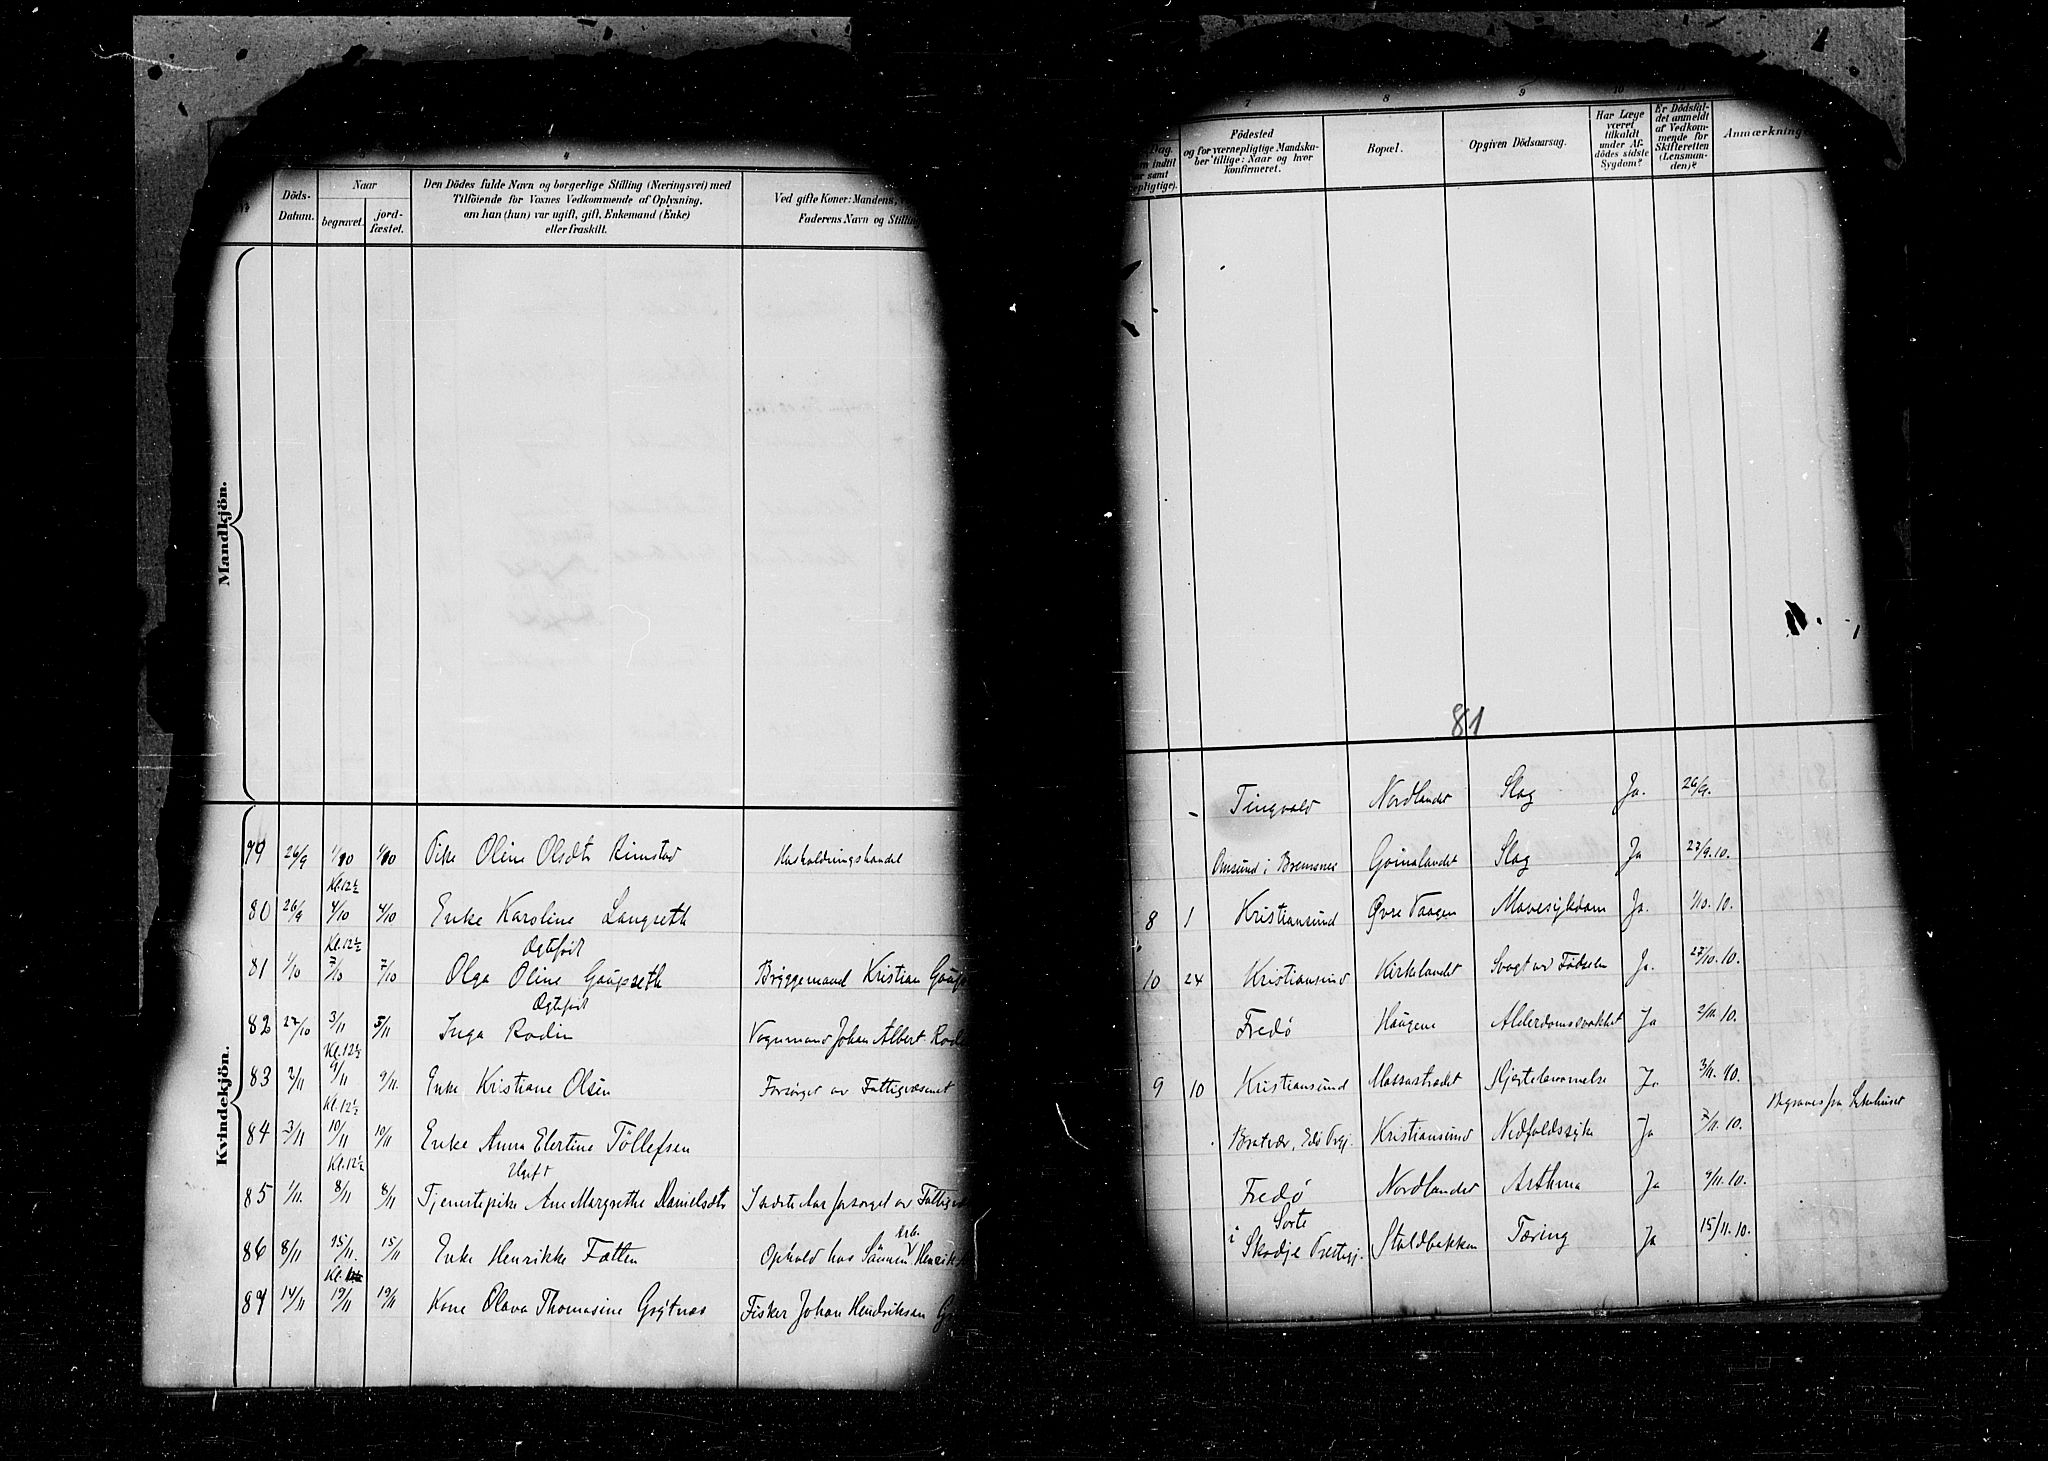 Döds-Datum.
Naar
begravet.
jord-fæstet.
4
Den Dödes fulde Navn og borgerlige Stilling (Næringsvei) med
Tilföiende for Voxnes Vedkommende af Oplysning,
om han (hun) var ugift, gift, Enkemand (Enke)
eller fraskilt.
Ved gifte Koner: Mandens,
Faderens Navn og Stilling
Mandkjön.
Kvindekjön.
79 26/9 1/10 1/10 Pike Oline Olsdtr Rimstad Husholdningshandel
Kl. 12½
80 26/9 4/10 4/10 Enke Karoline Langseth
Kl. 12½ Ogtefödt
81 1/10 7/10 7/10 Olga Oline Gaupseth Bryggemand Kristian
Ægtefödt
82 27/10 3/11 3/11 Inga Rodin Vognmand Johan Albert
Kl. 12½
83 2/11 9/11 9/11. Enke Kristiane Olsen Forsörget av Fattigvæsenet
Kl. 12½
84 3/11 10/11 10/11 Enke Anna Elertine Töllefsen
Kl. 12½ Ugift
85 1/11. 8/11 8/11 Tjenestepike Ane Margrethe Danielsdtr forsörget av
86 8/11 15/11. 15/11 Enke Henrikke Fætten Ophold hos Sönnen
Kl.
87 14/11 19/11 19/11 Kone Olava Thomasine Grytnes Fisker Johan Hendriksen
7
8
9
10
Dag.
Födested
og for værnepligtige Mandska-
ber tillige: Naar og hvor
konfirmeret.
Bopæl.
Opgiven Dödsaarsag.
Har Læge
været
tilkaldt
under Af-
dödes sidste
Sygdom?
Er Dödsfal-
det anmeldt
af Vedkom-
mende for
Skifteretten
(Lensman-
den)?
Anmærkninge
81
Tingvold Nordlandet Slag Ja. 26/9.
Omsund i Bremsnes Gomalandet Slag Ja 27/9.10.
8 1 Kristiansund Øvre Vaagen Mavesykdom Ja. 1/10.10.
10 24 Kristiansund Kirkelandet Svagt av Födselen Ja. 27/10.10.
Fredø Haugene Alderdomssvakhet Ja 2/11.10.
9 10 Kristiansund Hjertelammelse Ja 3/11.10.
Bratvær, Edö Kristiansund Nedfaldssyke Ja 7/11.10. Begraves fra Sykehuset
Fredø Nordlandet Asthma Ja 9/11.10.
Sorte
i Skodje Prestegj. Staldbakken Tæring Ja 15/11.10.